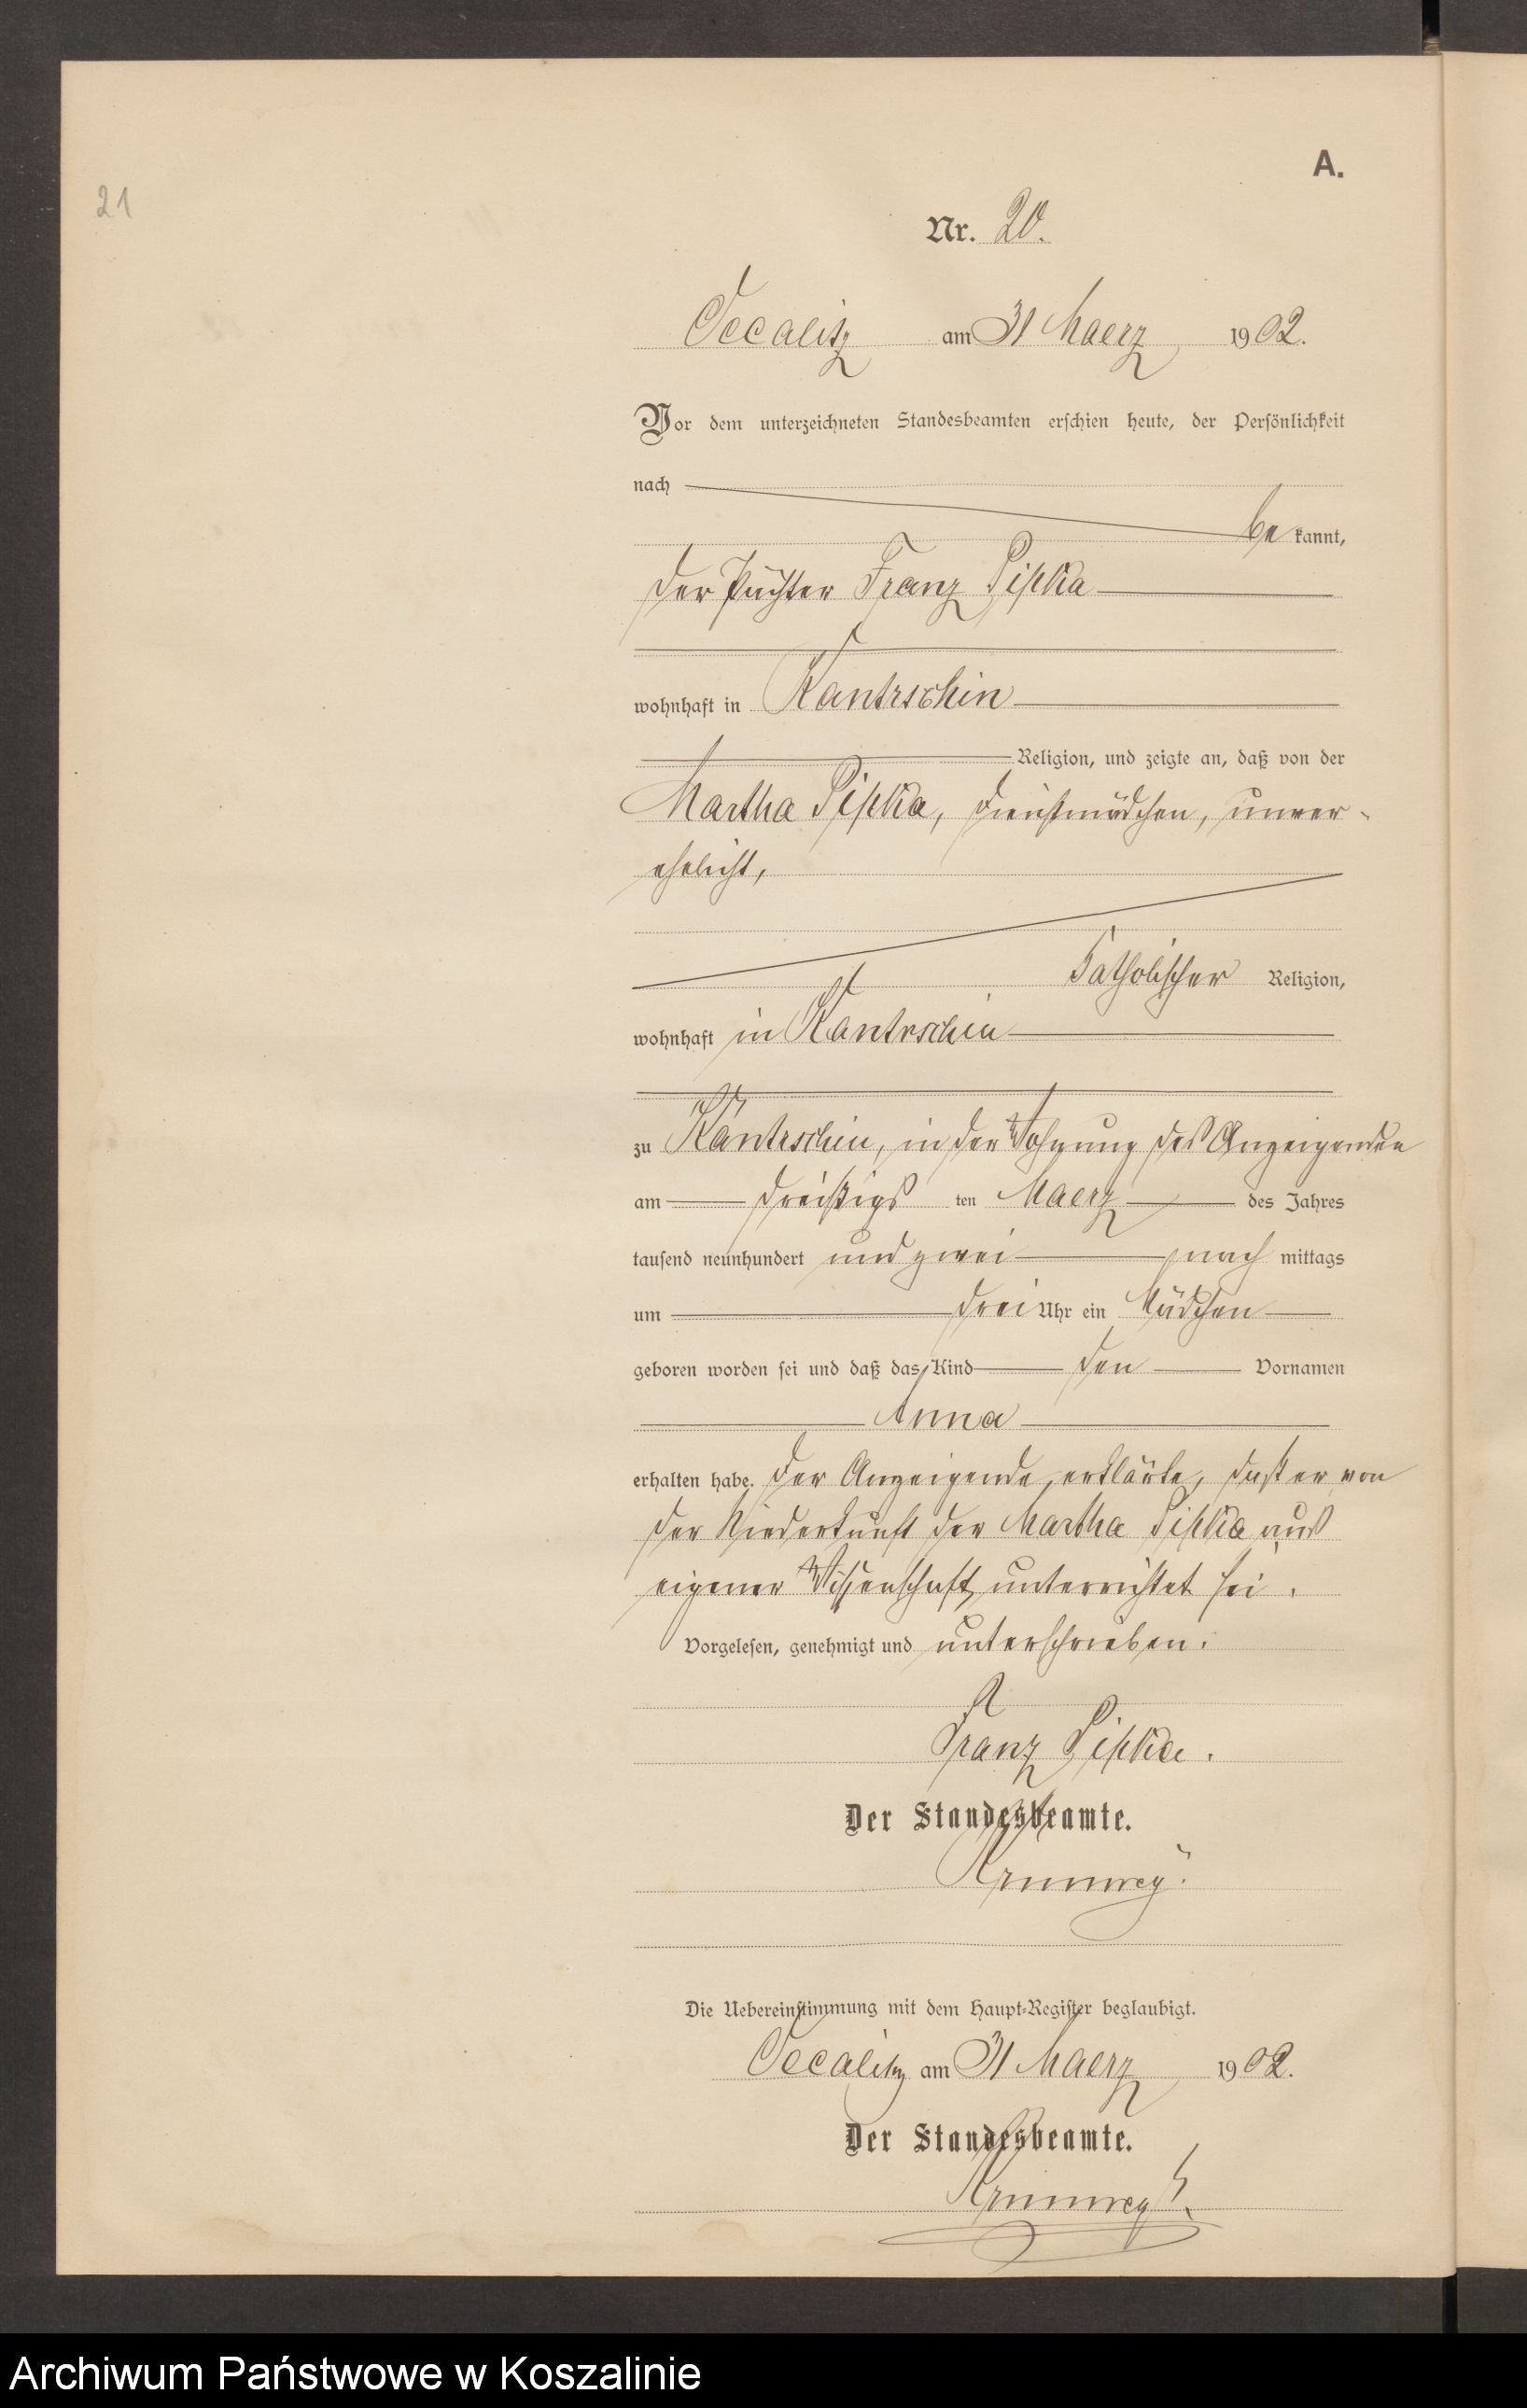 21
A.
Nr. 20.
Occalitz am 31 Maerz 1902.
Vor dem unterzeichneten Standesbeamten erschien heute, der Persönlichkeit
nach
be kannt,
der Pächter Franz Pipka
wohnhaft in Kantrschin
Religion, und zeigte an, daß von der
Martha Pipka, Dienstmädchen, unver-
ehelicht,
katholischer Religion,
wohnhaft in Kantrschin
zu Kantrschin, in der Wohnung des Anzeigenden
am dreißigs ten Maerz des Jahres
tausend neunhundert und zwei nach mittags
um drei Uhr ein Mädchen
geboren worden sei und daß das Kind den Vornamen
Anna
erhalten habe. Der Anzeigende erklärte, daß er von
der Niederkunft der Martha Pipka aus
eigener Wissenschaft unterrichtet sei.
Vorgelesen, genehmigt und unterschrieben.
Franz Pipka.
Der Standesbeamte.
Die Uebereinstimmung mit dem Haupt-Register beglaubigt.
Occalitz am 31 Maerz 1902.
Der Standesbeamte.
Archiwum Państwowe w Koszalinie